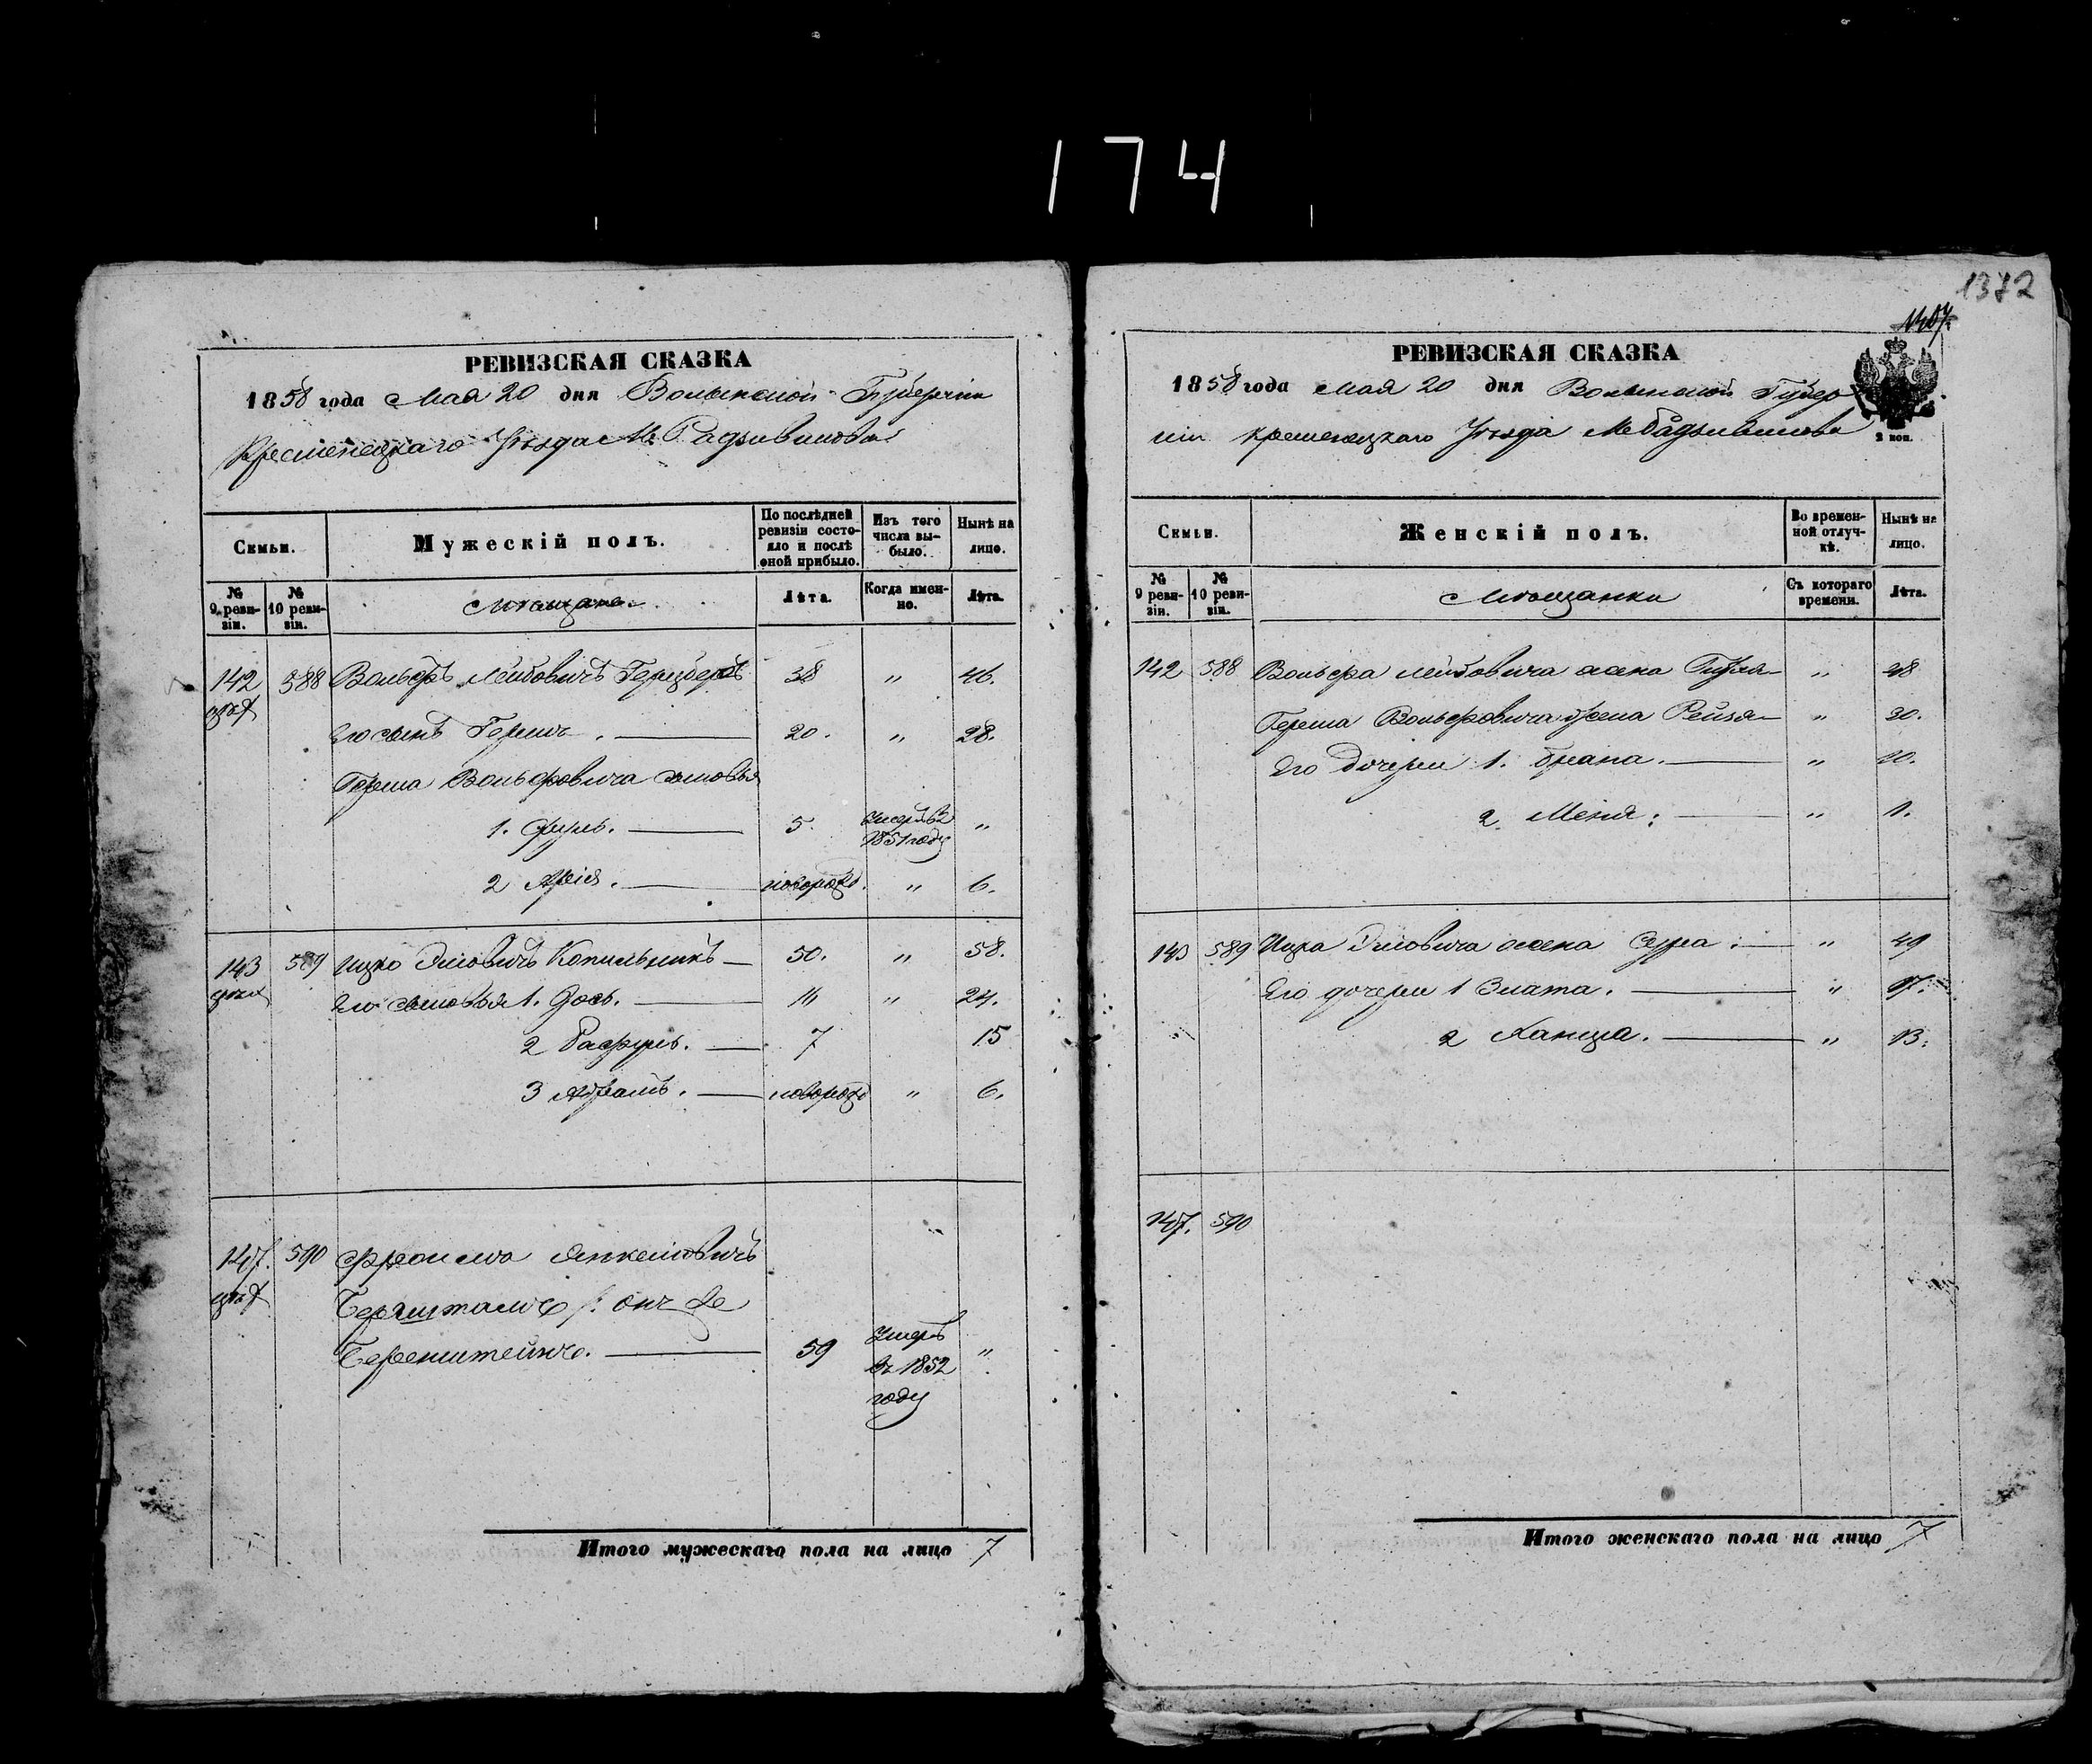 174
1372
1407.
РЕВИЗСКАЯ СКАЗКА
1858 года Мая 20 дня Волынской Губерніи
Кременецкаго Уѣзда М. Радзивилова
Семьи.
Мужескій полъ.
По послѣдней ревизіи состояло и послѣ оной прибыло.
Изъ того числа выбыло.
Нынѣ на лицо.
№ 9 ревизіи.
№ 10 ревизіи.
Мѣщане.
Лѣта.
Когда именно.
Лѣта.
142 588 Вольфъ Лейбовичъ Герцберъ 38 " 46.
Его сынъ Гершъ. 20. " 28.
Герша Вольфовича сыновья
1. Сруль. 5. Умеръ въ 1851 году "
2 Арія. новорожд. " 6.
143 589 Ицко Эліовичъ Копильникъ 50. " 58.
Его сыновья 1. Іось. 16 " 24.
2 Расруль. 7 15
3 Абрамъ. новорожд " 6.
147. 590 Фроимъ Янкелiовичъ
Бернштамъ /: онъ же
Беренштейнъ. 59 Умеръ въ 1852 году "
Итого мужескаго пола на лицо 7
РЕВИЗСКАЯ СКАЗКА
1858 года Мая 20 дня Волынской Губер
ніи Кременецкаго Уѣзда М. Радзивилова
2 коп.
Семьи.
Женскій полъ.
Во временной отлучкѣ.
Нынѣ на лицо.
№ 9 ревизіи.
№ 10 ревизіи.
Мѣщанки
Съ котораго времени.
Лѣта.
142 588 Вольфа Лейбовича жена Гитля " 48
Герша Вольфовича жена Рейзя " 30.
Его дочери 1. Брана. " 10.
2 Меня: " 1.
143 589 Ицка Эліовича жена Сура: " 49
Его дочери 1 Злата. " 17.
2 Ханца. " 13.
147. 590
Итого женскаго пола на лицо 7